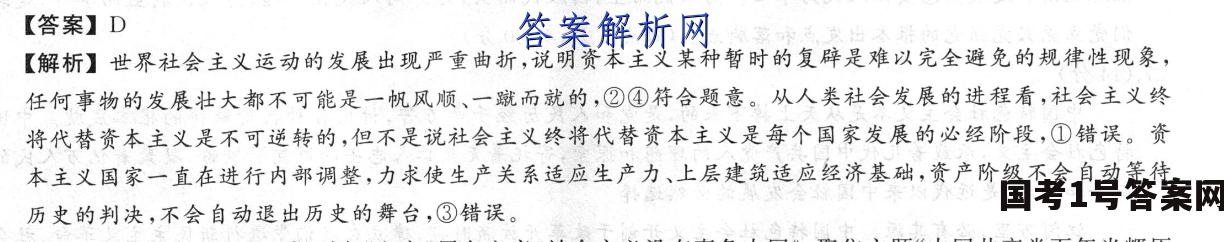 【答案】D
答案解析网
【解析】世界社会主义运动的发展出现严重曲折,说明资本主义某种暂时的复辟是难以完全避免的规律性现象,
任何事物的发展壮大都不可能是一帆风顺、一蹴而就的,②④符合题意。从人类社会发展的进程看,社会主义终
将代替资本主义是不可逆转的,但不是说社会主义终将代替资本主义是每个国家发展的必经阶段,①错误。资
本主义国家一直在进行内部调整,力求使生产关系适应生产力、上层建筑适应经济基础,资产阶级不会自动等待
历史的判决,不会自动退出历史的舞台,③错误。
国考1号答案网